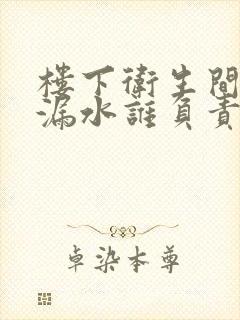 樓下衛生間
漏水誰負責
卓染本尊